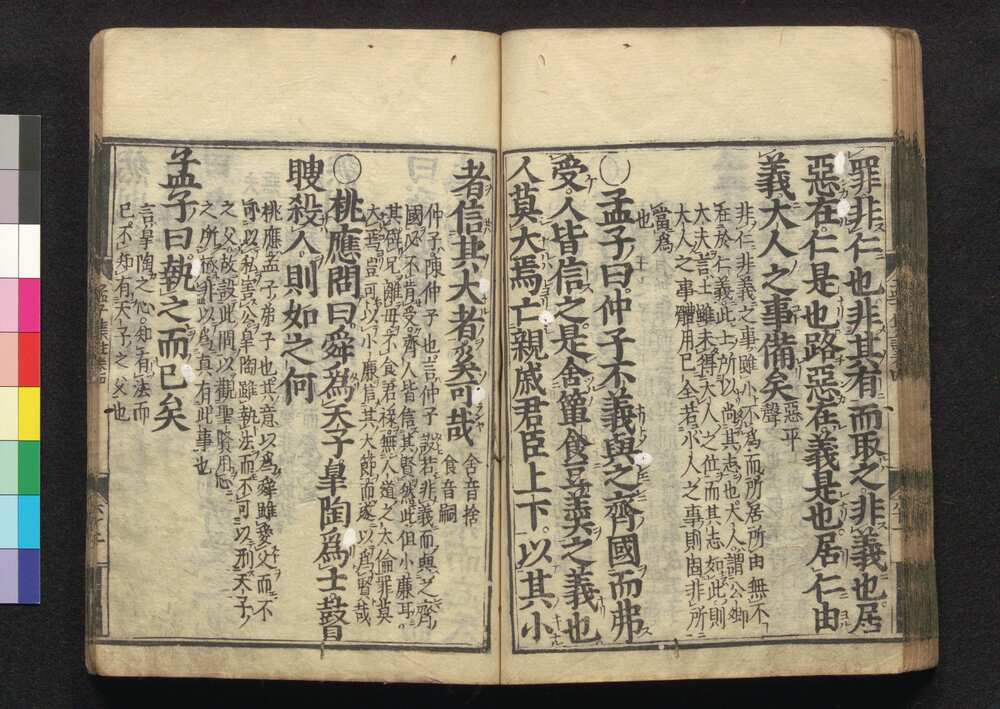 罪非仁也非其有而取之非義也居
惡在仁是也路惡在義是也居仁由
義大人之事備矣
惡平
聲
非仁非義之事雖小不爲而所居所由無不
在於仁義此士所以尚其志也大人謂公卿
大夫言士雖未得大人之位而其志如此則
大人之事體用已全若小人之事則固非所
當爲
也
○孟子曰仲子不義與之齊國而弗
受人皆信之是舍簞食豆羹之義也
人莫大焉亡親戚君臣上下以其小
者信其大者奚可哉
舍音捨
食音嗣
仲子陳仲子也言仲子設若非義而與之齊
國必不肯受齊人皆信其賢然此但小廉耳
其辟兄離母不食君祿無人道之大倫罪莫
大焉豈可以小廉信其大節而遂以爲賢哉
○桃應問曰舜爲天子皐陶爲士瞽
瞍殺人則如之何
桃應孟子弟子也其意以爲舜雖愛父而不
可以私害公皐陶雖執法而不可以刑天子
之父故設此問以觀聖賢用心
之所極非以爲眞有此事也
孟子曰執之而已矣
言皐陶之心知有法而
已不知有天子之父也